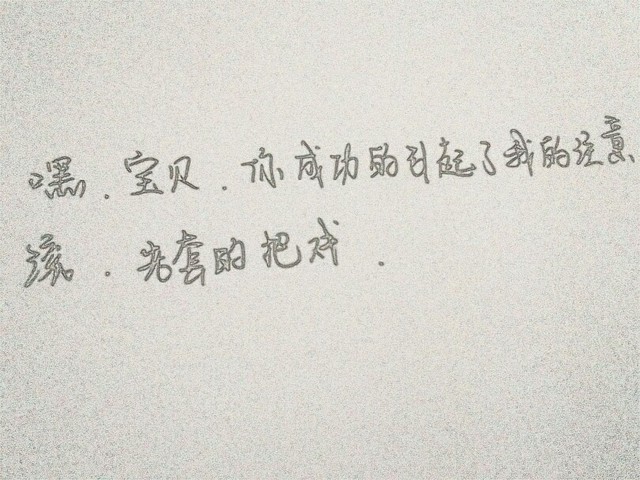 嘿.宝贝.你成功的引起了我的注意
滚.老套的把戏.